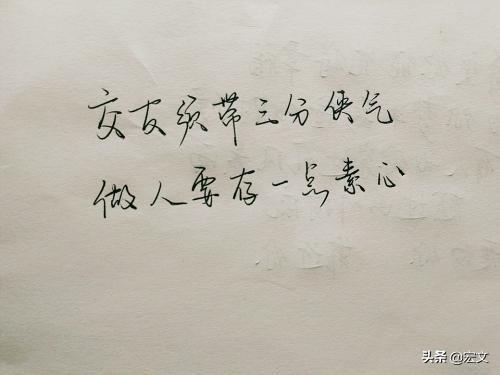 交友须带三分侠气
做人要存一点素心
头条 @宏文